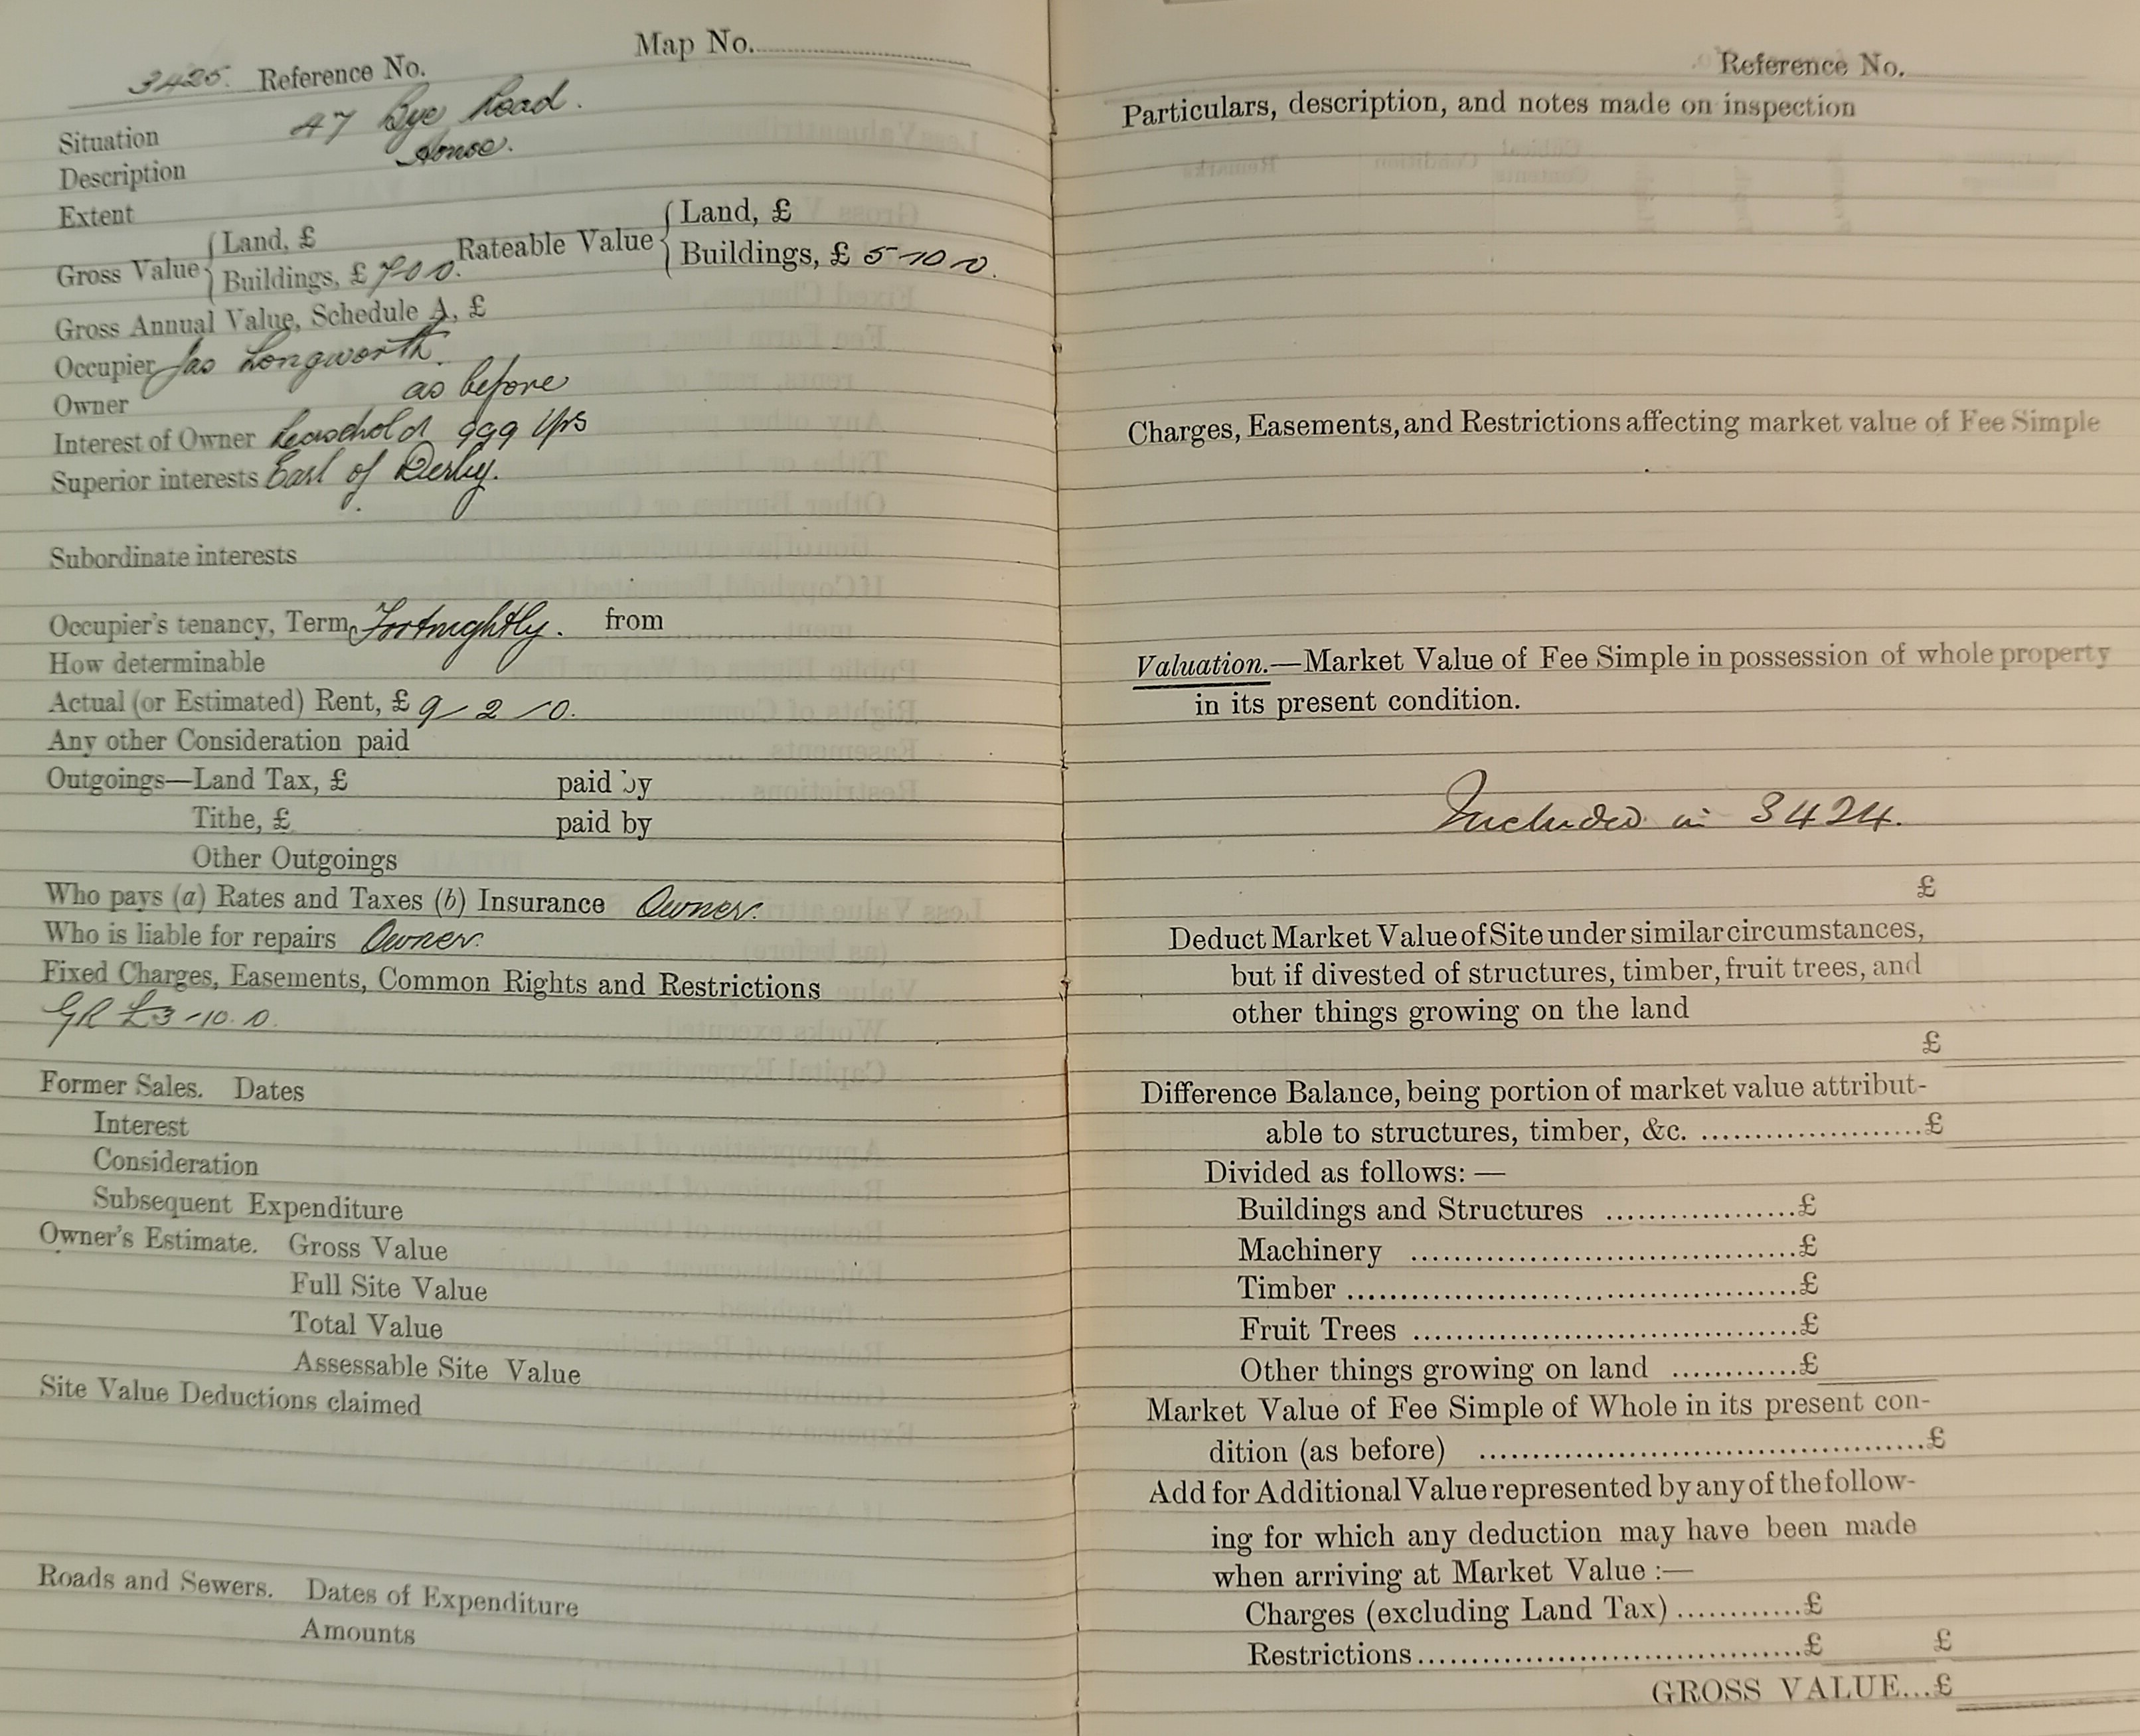 Map No.
3425. Reference No.
Situation 47 Bye Road.
Description House.
Extent
Gross Value { Land, £
Buildings, £ 7 0 0. Rateable Value { Land, £
Buildings, £ 5-10 0.
Gross Annual Value, Schedule A, £
Occupier Jas Longworth.
Owner as before
Interest of Owner Leasehold 999 Yrs
Superior interests Earl of Derby.
Subordinate interests
Occupier's tenancy, Term, Fortnightly. from
How determinable
Actual (or Estimated) Rent, £ 9 - 2 - 0.
Any other Consideration paid
Outgoings—Land Tax, £ paid by
Tithe, £ paid by
Other Outgoings
Who pays (a) Rates and Taxes (b) Insurance Owner.
Who is liable for repairs Owner.
Fixed Charges, Easements, Common Rights and Restrictions
GR £3-10.0.
Former Sales. Dates
Interest
Consideration
Subsequent Expenditure
Owner's Estimate. Gross Value
Full Site Value
Total Value
Assessable Site Value
Site Value Deductions claimed
Roads and Sewers. Dates of Expenditure
Amounts
Reference No.
Particulars, description, and notes made on inspection
Charges, Easements, and Restrictions affecting market value of Fee Simple
Valuation.—Market Value of Fee Simple in possession of whole property
in its present condition.
Included in 3424.
£
Deduct Market Value of Site under similar circumstances,
but if divested of structures, timber, fruit trees, and
other things growing on the land
£
Difference Balance, being portion of market value attribut-
able to structures, timber, &c. ......................£
Divided as follows: —
Buildings and Structures ..................£
Machinery .....................................£
Timber ...........................................£
Fruit Trees .....................................£
Other things growing on land ............£
Market Value of Fee Simple of Whole in its present con-
dition (as before) ...........................................£
Add for Additional Value represented by any of the follow-
ing for which any deduction may have been made
when arriving at Market Value :—
Charges (excluding Land Tax) ............£
Restrictions.......................................£ £
GROSS VALUE...£